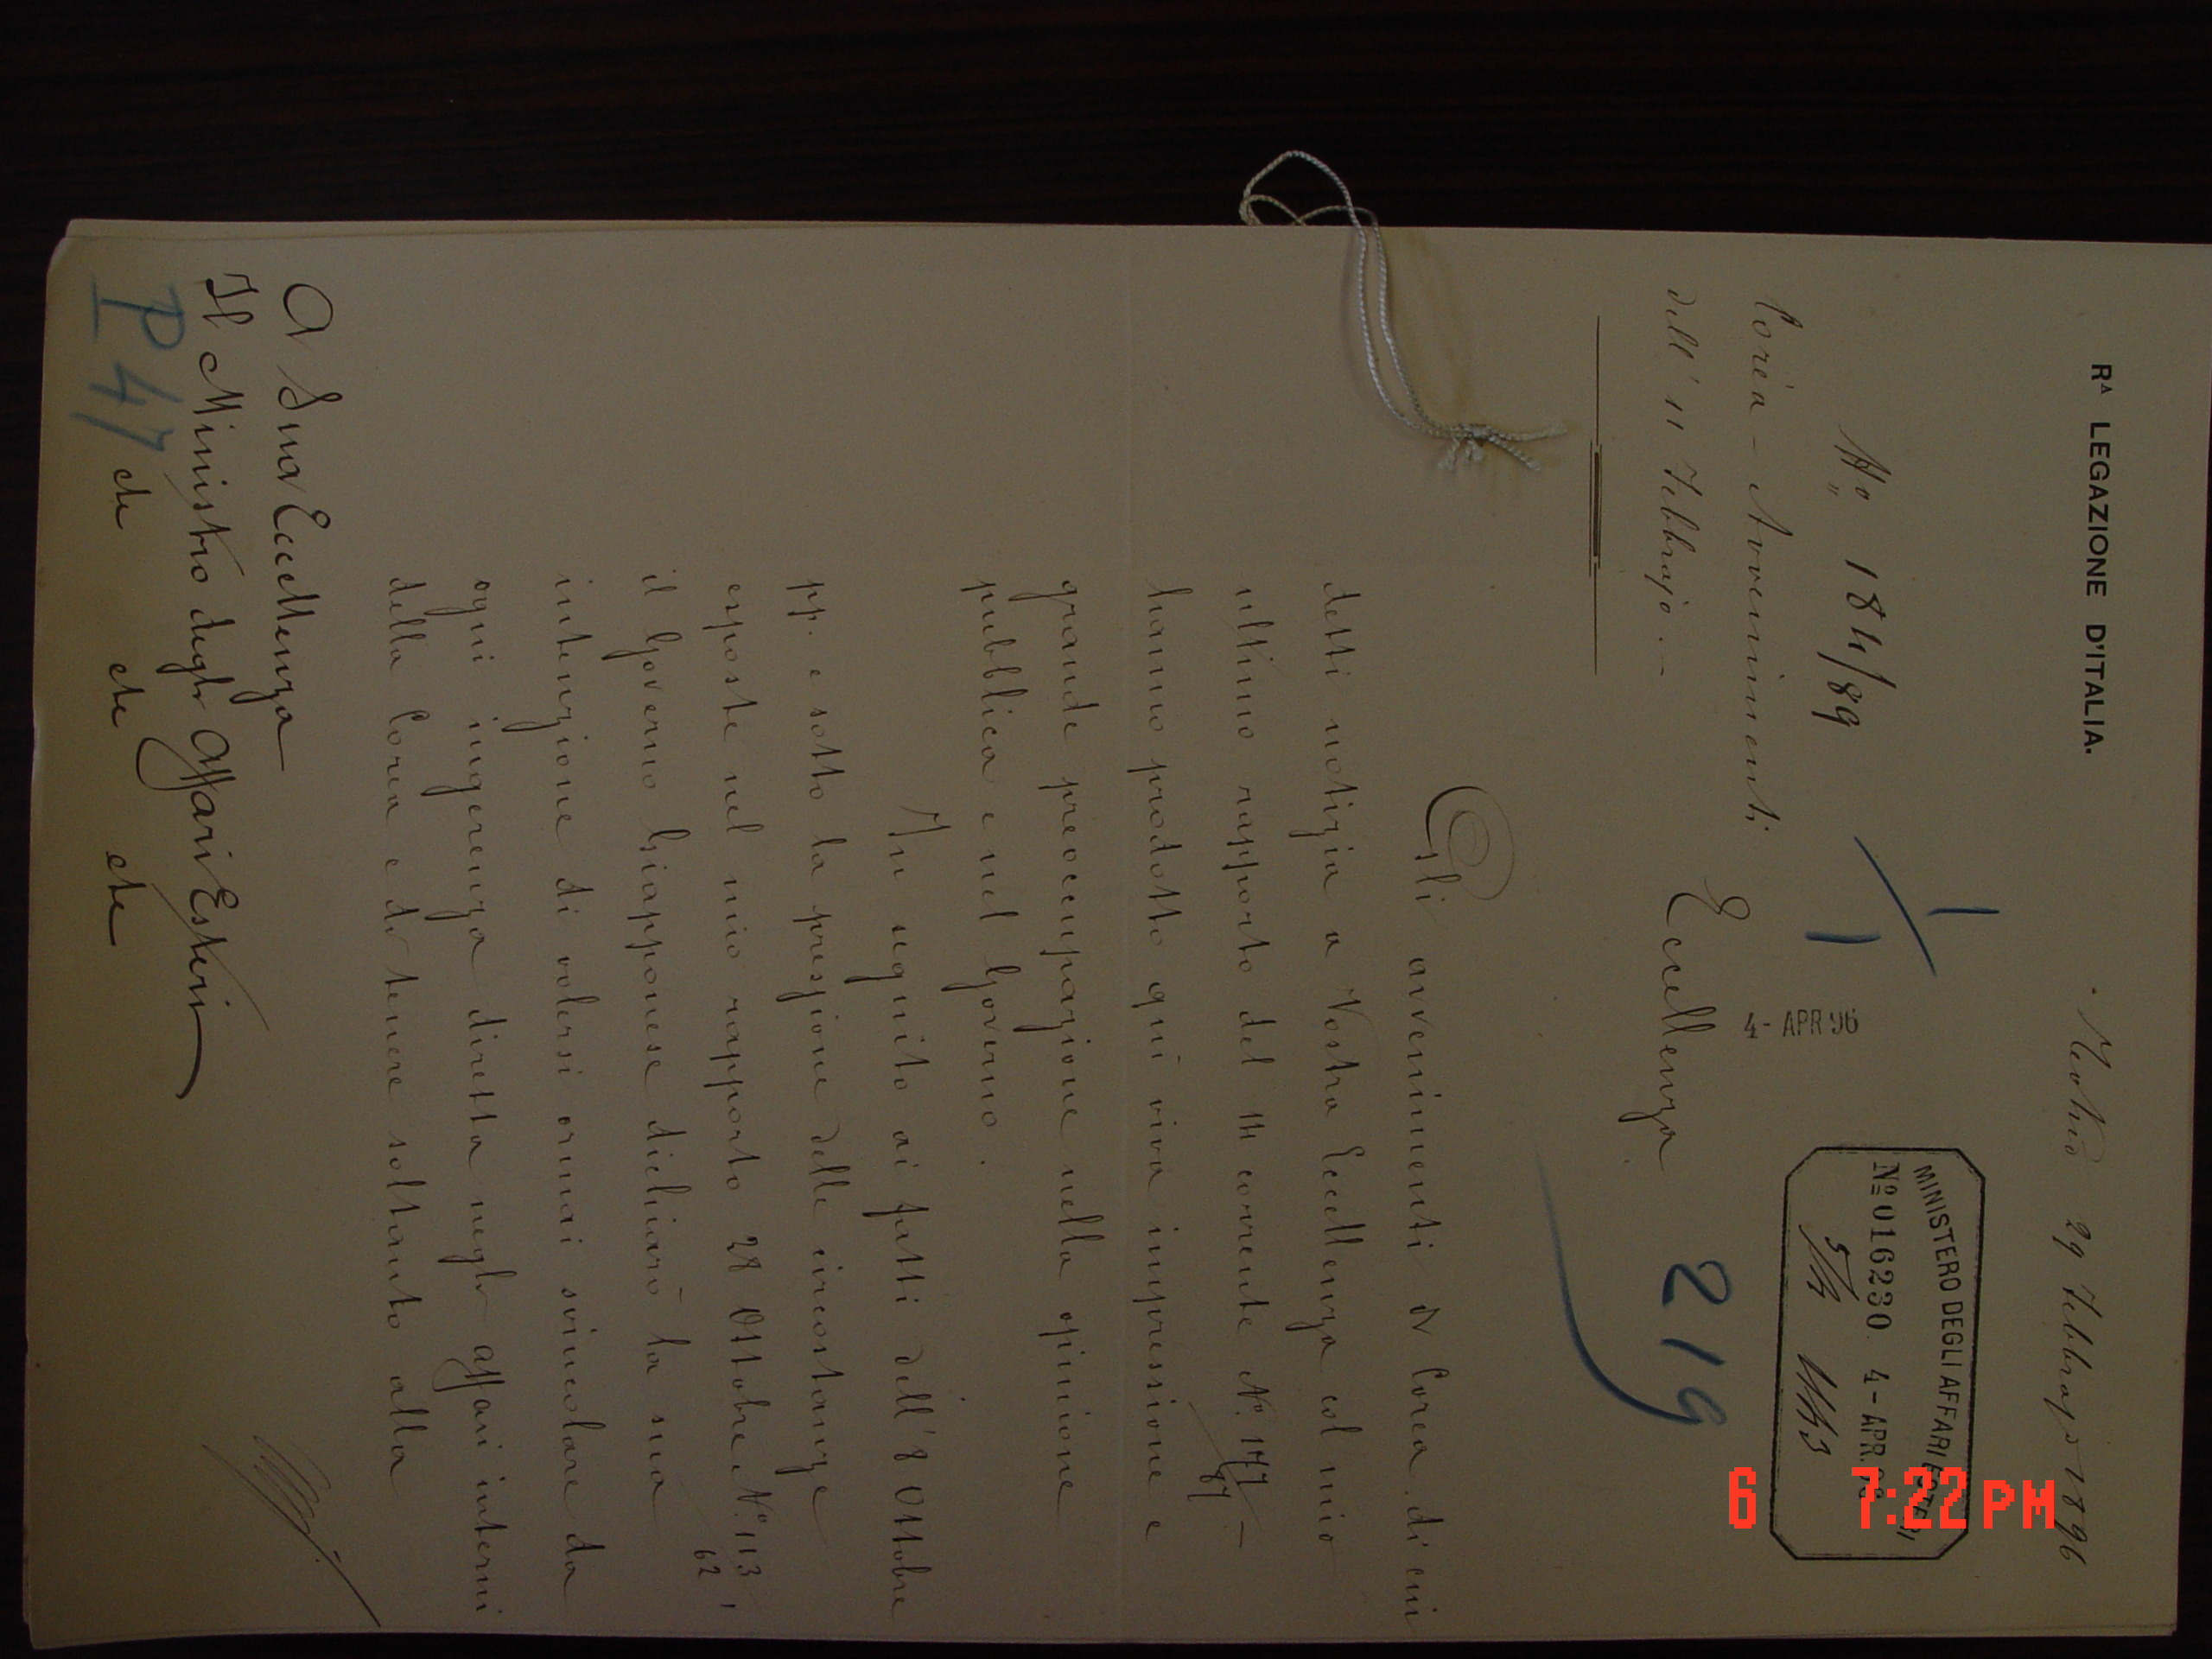 Rᴬ LEGAZIONE D'ITALIA.
29 Febbrajo 1896
Nº 184/89
Corea - Avvenimenti
dell' 11 Febbrajo.-
4- APR 96
MINISTERO DEGLI AFFARI ESTERI
Nº 016230 4- APR. 96
219
Eccellenza
Gli avvenimenti di Corea di cui
detti notizia a Vostra Eccellenza col mio
ultimo rapporto del 14 corrente Nº 177/87 -
hanno prodotto quì viva impressione e
grande preoccupazione nella opinione
pubblica e nel Governo.
In seguito ai fatti dell' 8 Ottobre
pp. e sotto la pressione delle circostanze
esposte nel mio rapporto 28 Ottobre Nº 113/62,
il Governo Giapponese dichiarò la sua
intenzione di volersi ormai svincolare da
ogni ingerenza diretta negli affari interni
della Corea e di tenere soltanto alla
A Sua Eccellenza
Il Ministro degli Affari Esteri
etc etc etc
P 47
6 7:22 PM